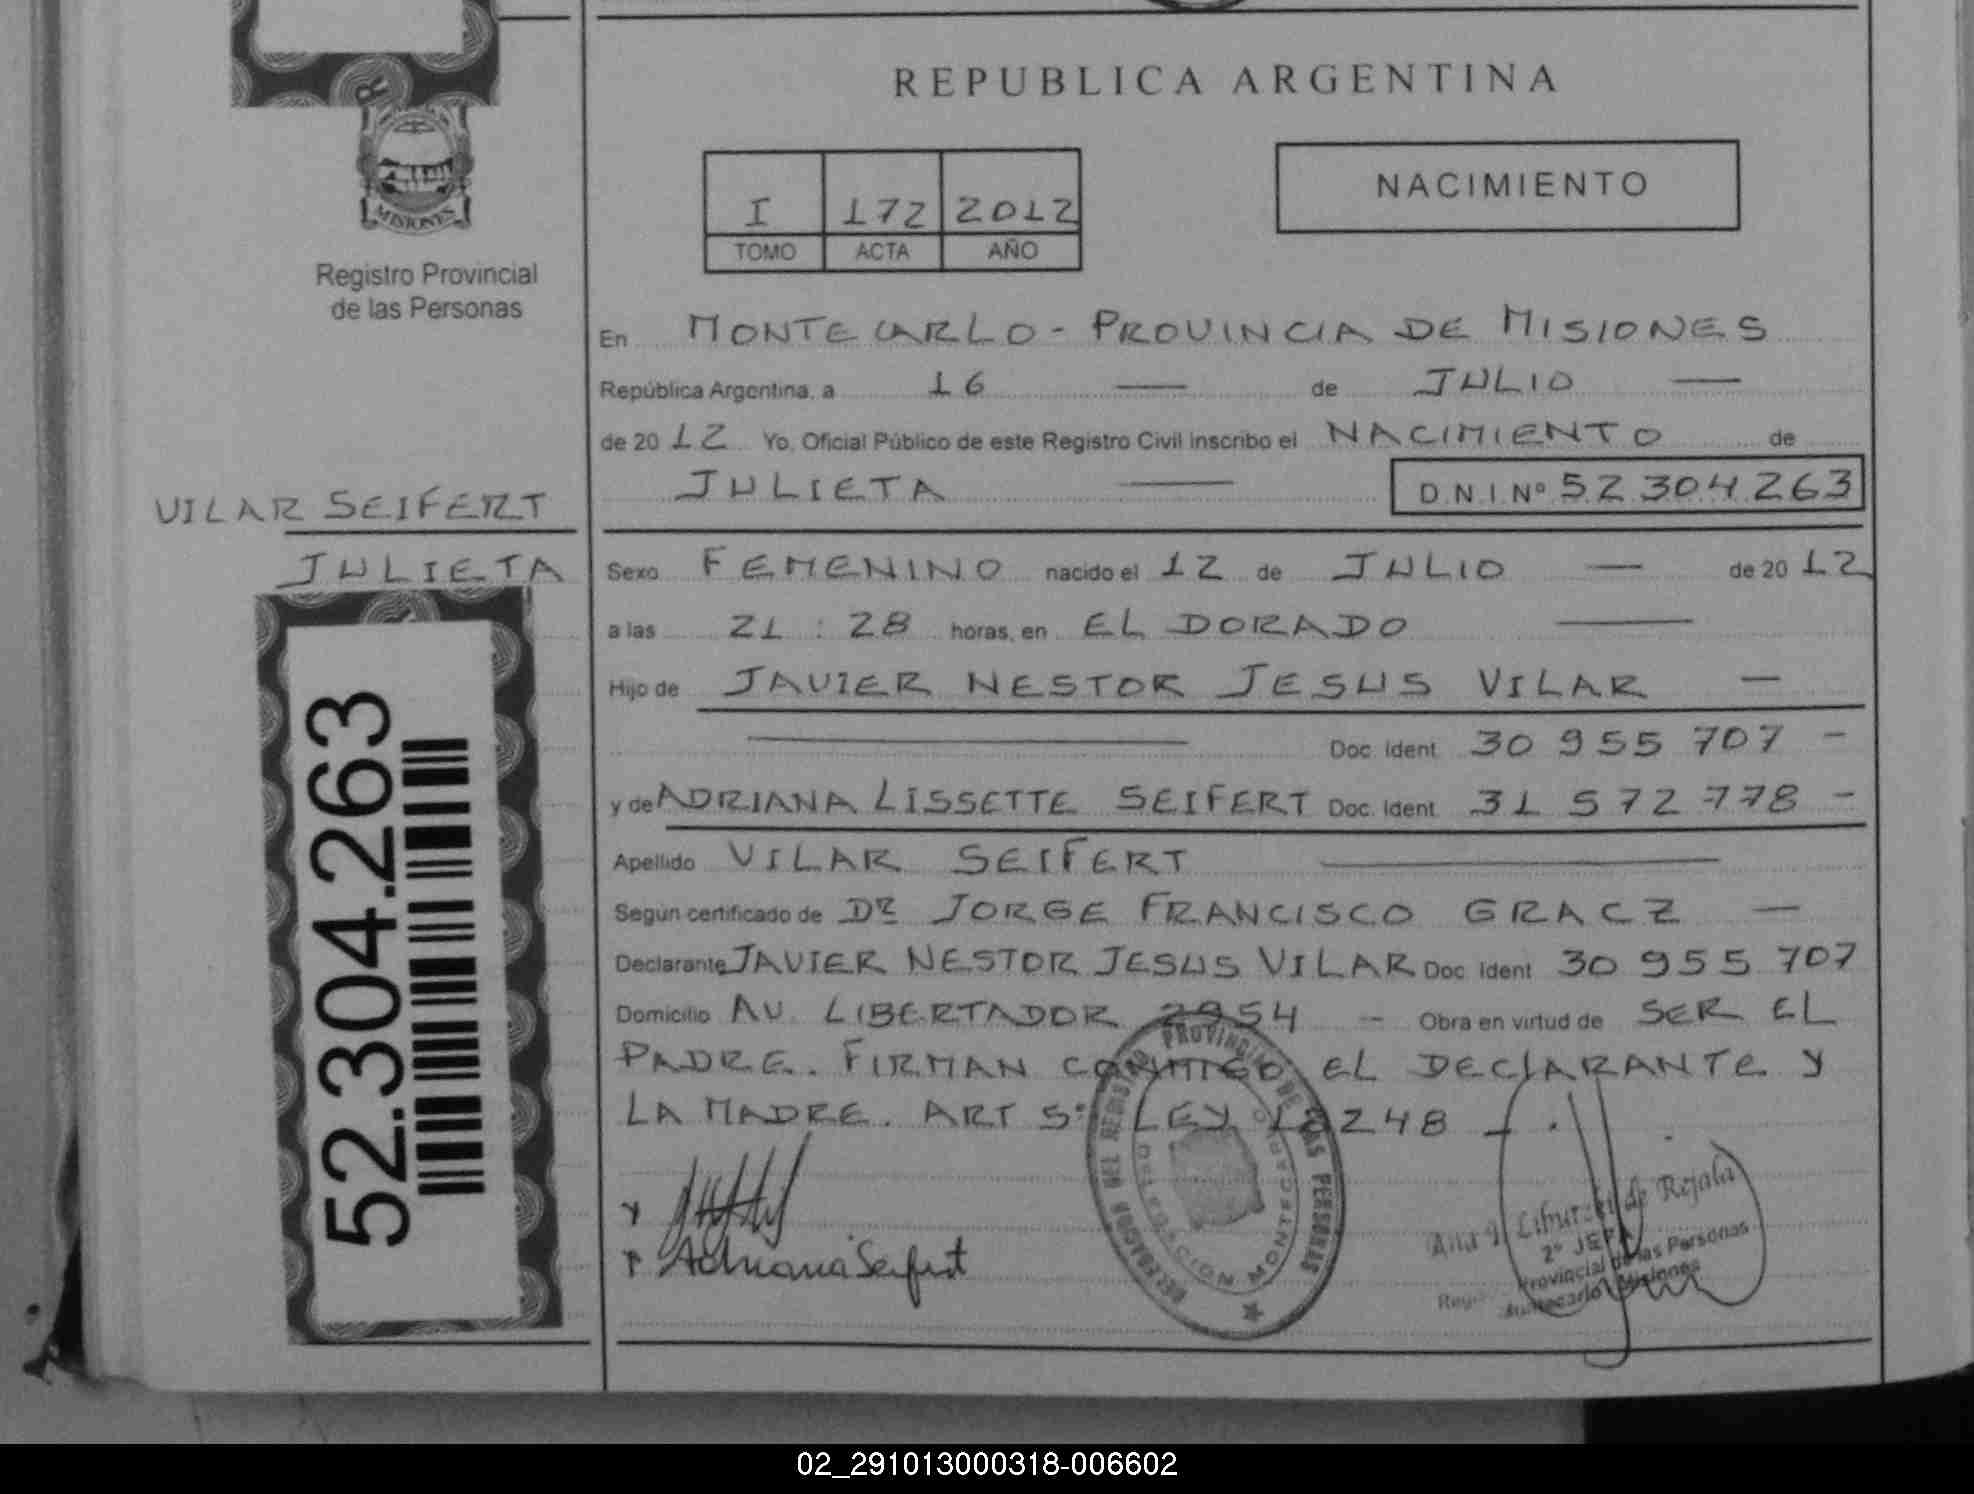 REPUBLICA ARGENTINA
MISIONES
Registro Provincial
de las Personas
I 172 2012
TOMO ACTA AÑO
NACIMIENTO
En MONTECARLO - PROVINCIA DE MISIONES
República Argentina, a 16 — de JULIO —
de 2012 Yo, Oficial Público de este Registro Civil inscribo el NACIMIENTO de
JULIETA — D.N.I.Nº 52.304.263
VILAR SEIFERT
JULIETA
Sexo FEMENINO nacido el 12 de JULIO — de 2012
a las 21:28 horas, en EL DORADO —
Hijo de JAVIER NESTOR JESUS VILAR —
— Doc. Ident. 30 955 707 -
y de ADRIANA LISSETTE SEIFERT Doc. Ident. 31 572 778 -
Apellido VILAR SEIFERT —
Según certificado de DR JORGE FRANCISCO GRACZ —
Declarante JAVIER NESTOR JESUS VILAR Doc. Ident 30 955 707
Domicilio AV. LIBERTADOR 2954 - Obra en virtud de SER EL
PADRE. FIRMAN CONMIGO EL DECLARANTE Y
LA MADRE. ART 5º LEY 18248 - .
52.304.263
Adriana Seifert
DELEGACION DEL REGISTRO PROVINCIAL DE LAS PERSONAS
DELEGACION MONTECARLO
de Rejala
2º JEFA
Provincial de las Personas
Montecarlo Misiones
02_291013000318-006602